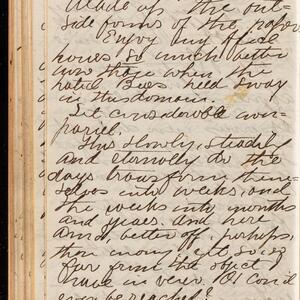 Made up the out-
side forms of the paper
Enjoy my office
hours so much better
now than when the
hated Bees held sway
in this domain.
Set considerable non-
pariel.
Thus slowly, steadily
and eternally do the
days transform them-
selves into weeks, and
the weeks into months
and years. And here
am I, better off, perhaps,
than many, yet so very
far from the object
I have in view. Oh! Could
ever be reached!